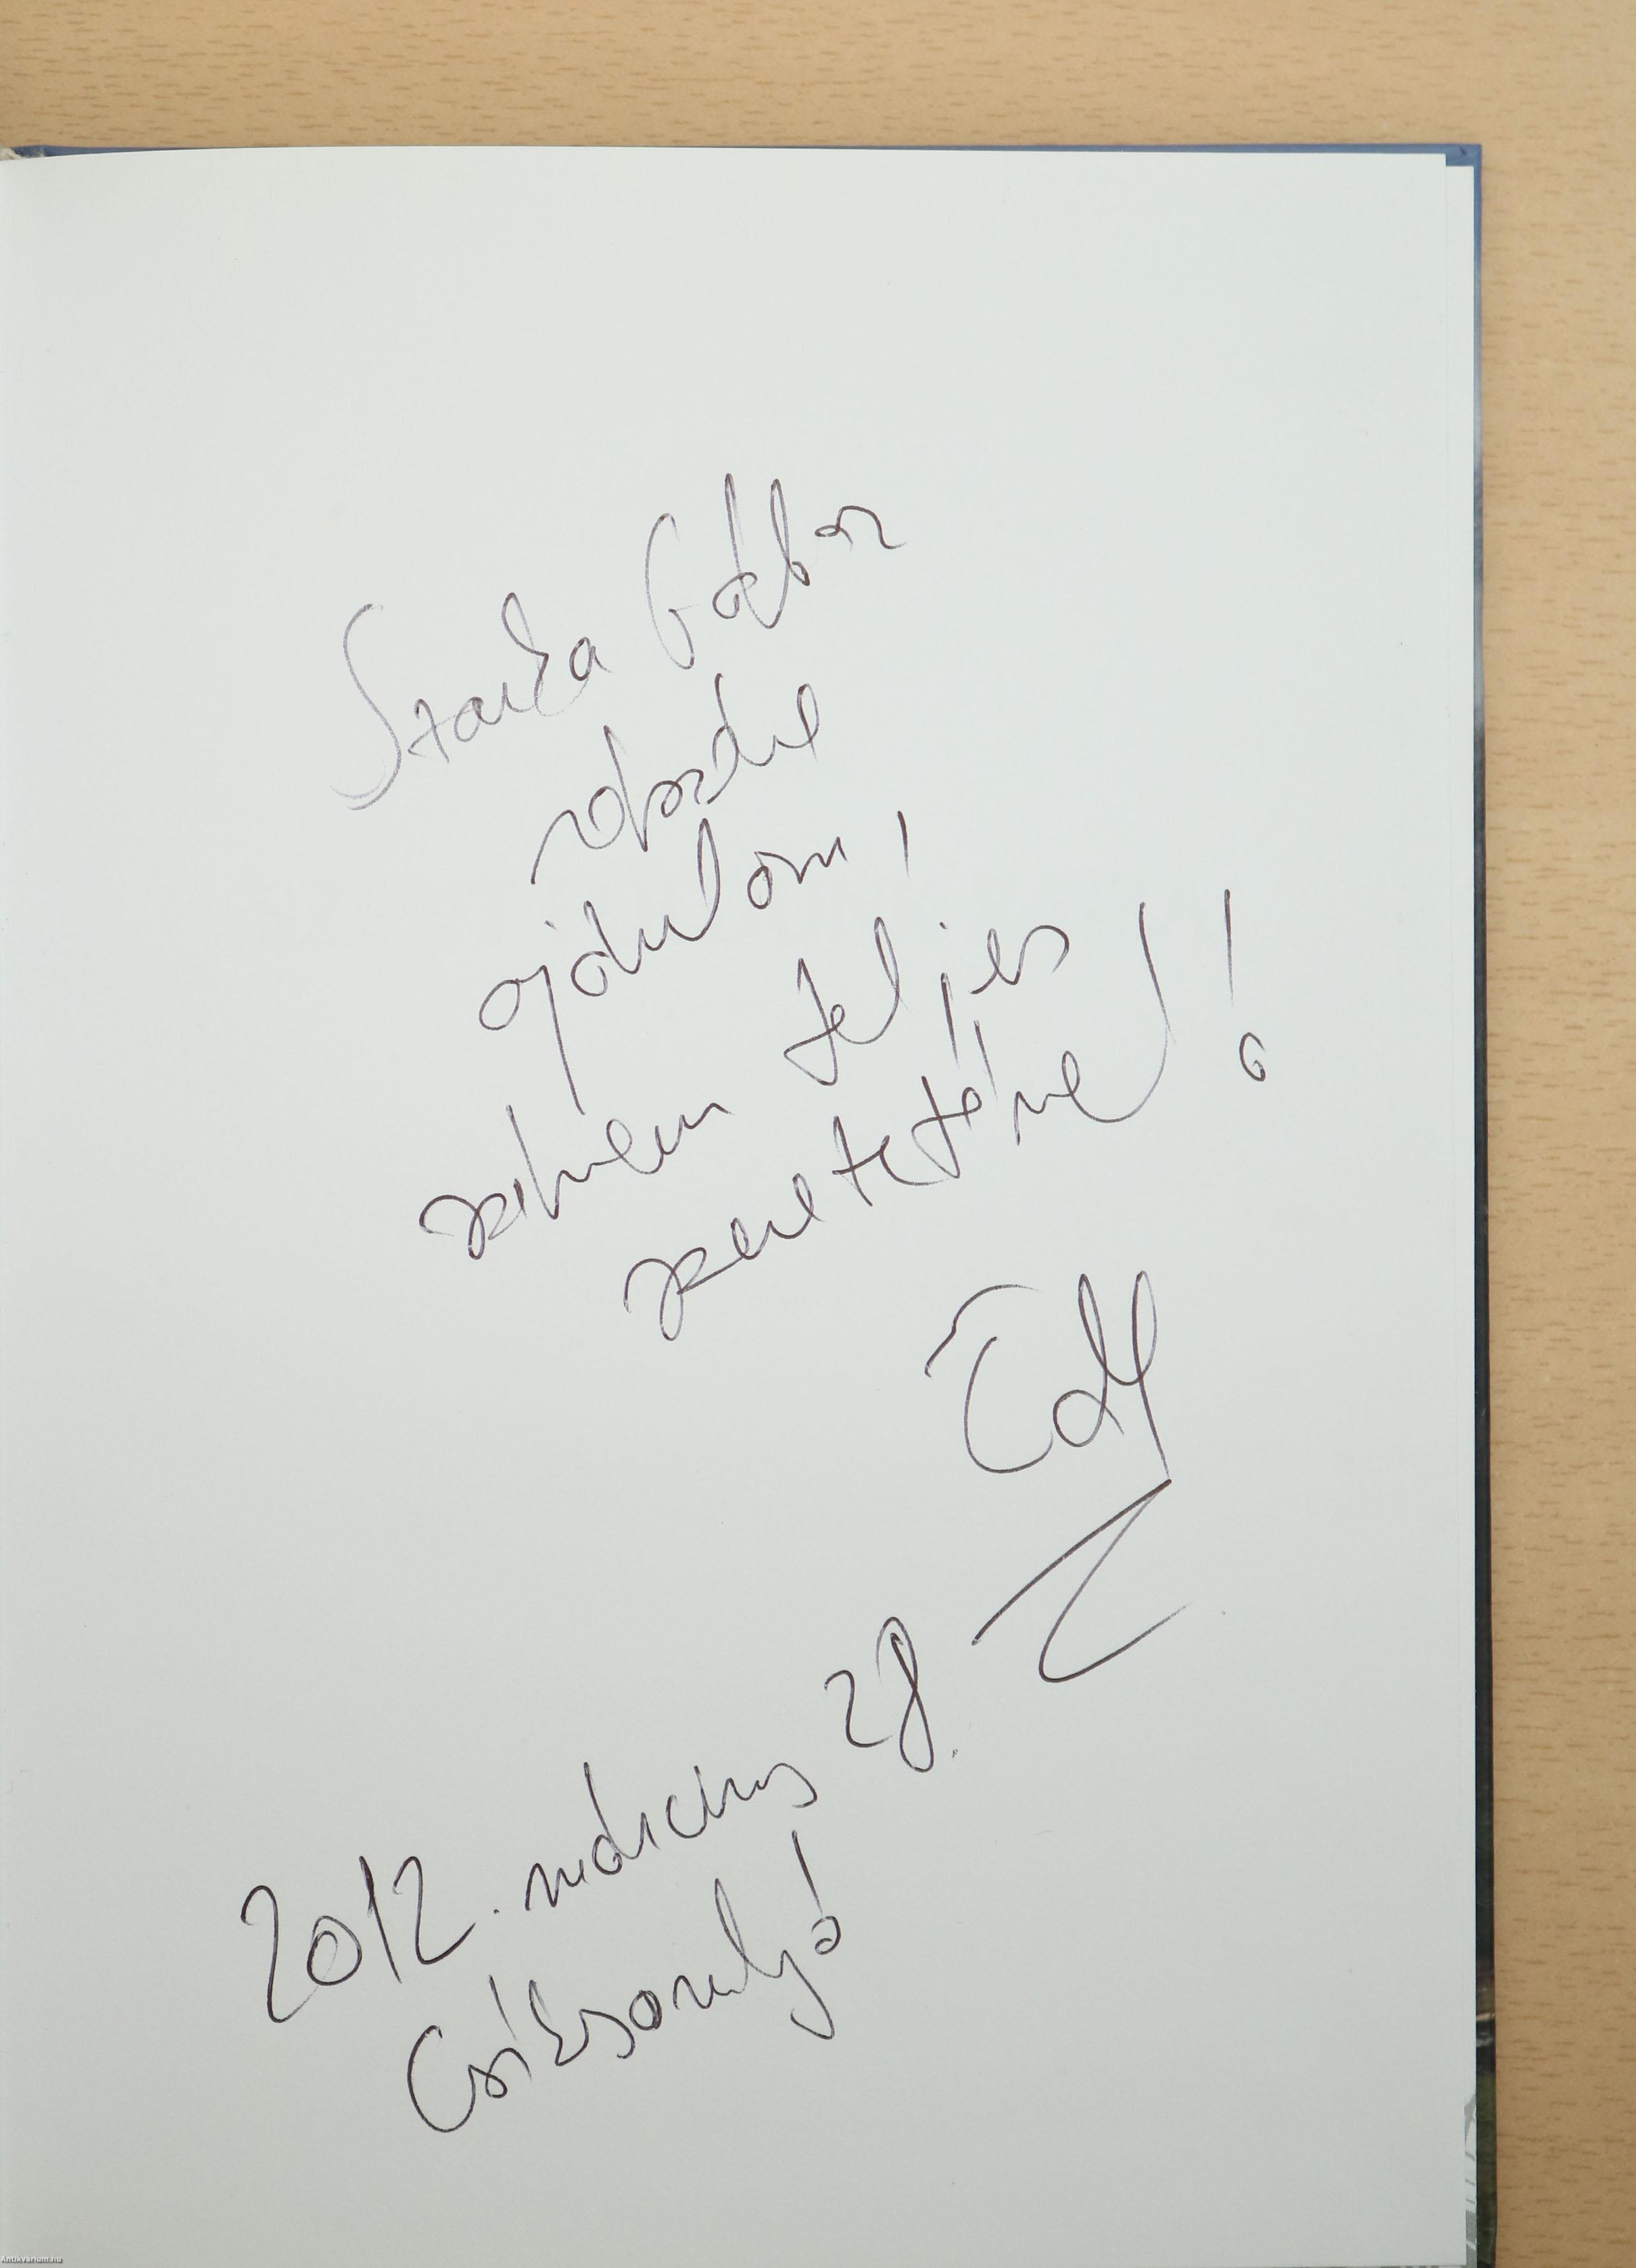 Szarka Gábor
részére
ajánlom,
szívem teljes
szeretetével!
2012. március 28.
Csíksomlyó!
Antikvárium.hu